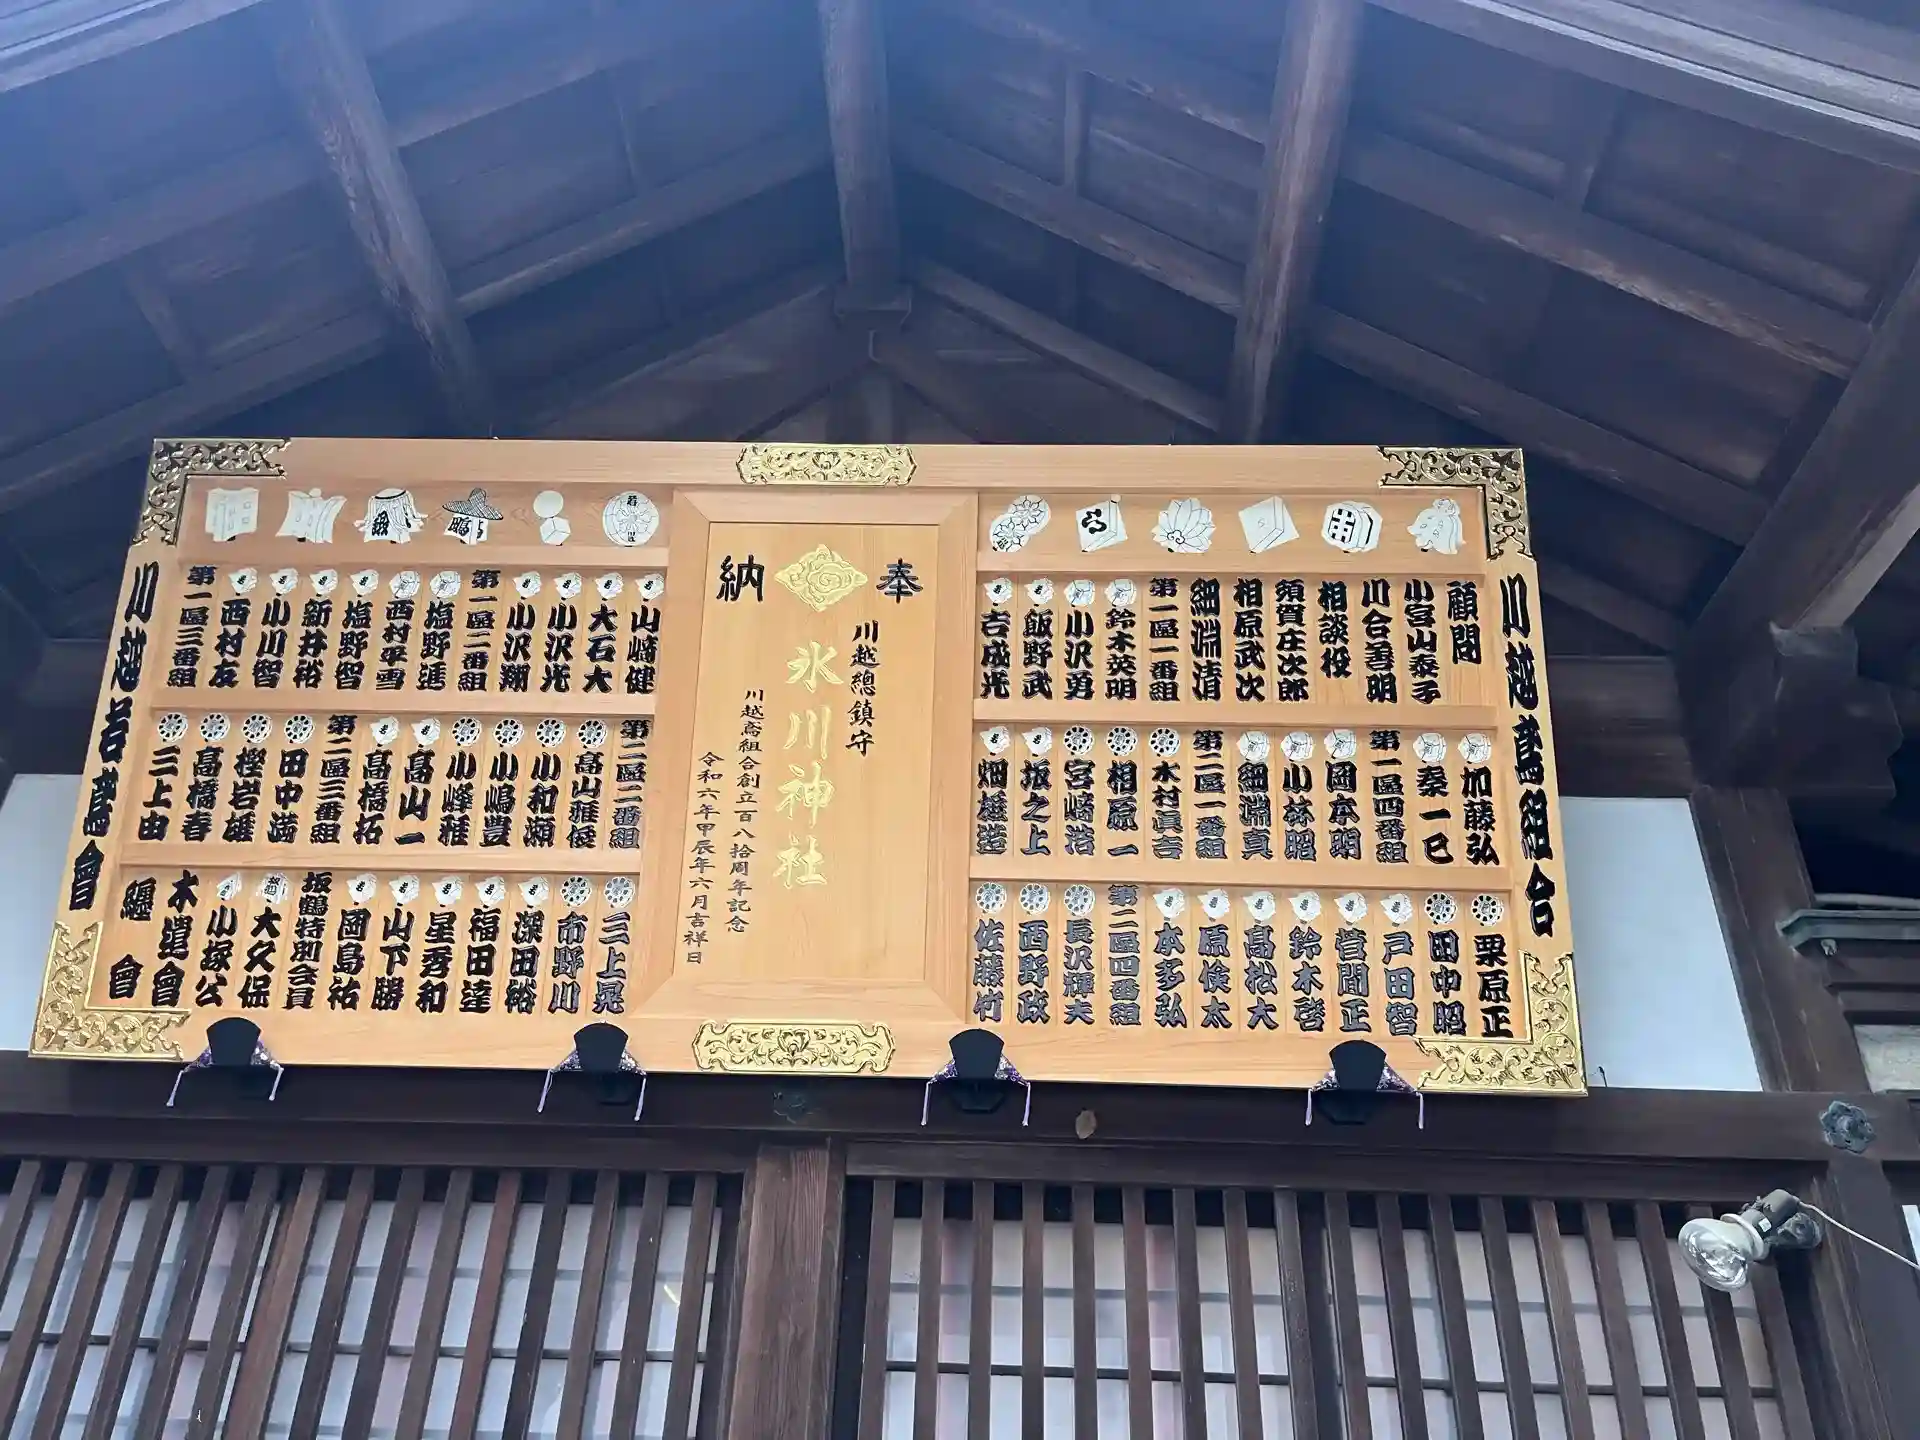 川越鳶組合
顧問
小宮山泰子
川合善明
相談役
須賀庄次郎
相原武次
細淵清
第一區一番組
鈴木英明
小沢勇
飯野武
吉成光
加藤弘
秦一巳
第一區四番組
岡本明
小林昭
細淵真
第二區一番組
木村眞吉
相原一
宮崎浩
坂之上
畑雄造
栗原正
田中昭
戸田智
菅間正
鈴木啓
高松大
原倹太
本多弘
第二區四番組
長沢輝夫
西野政
佐藤竹
奉
納
川越總鎮守
氷川神社
川越鳶組合創立百八拾周年記念
令和六年甲辰年六月吉祥日
山崎健
大石大
小沢光
小沢翔
第一區二番組
塩野進
西村平雪
塩野智
新井裕
小川智
西村友
第一區三番組
第二區二番組
高山雅俊
小和瀬
小嶋豊
小峰雅
高山一
高橋拓
第二區三番組
田中満
樫岩雄
高橋春
三上由
三上晃
市野川
深田裕
福田達
星秀和
山下勝
岡島祐
坂鶴特別会員
大久保
小塚公
木遣會
纏會
川越若鳶會